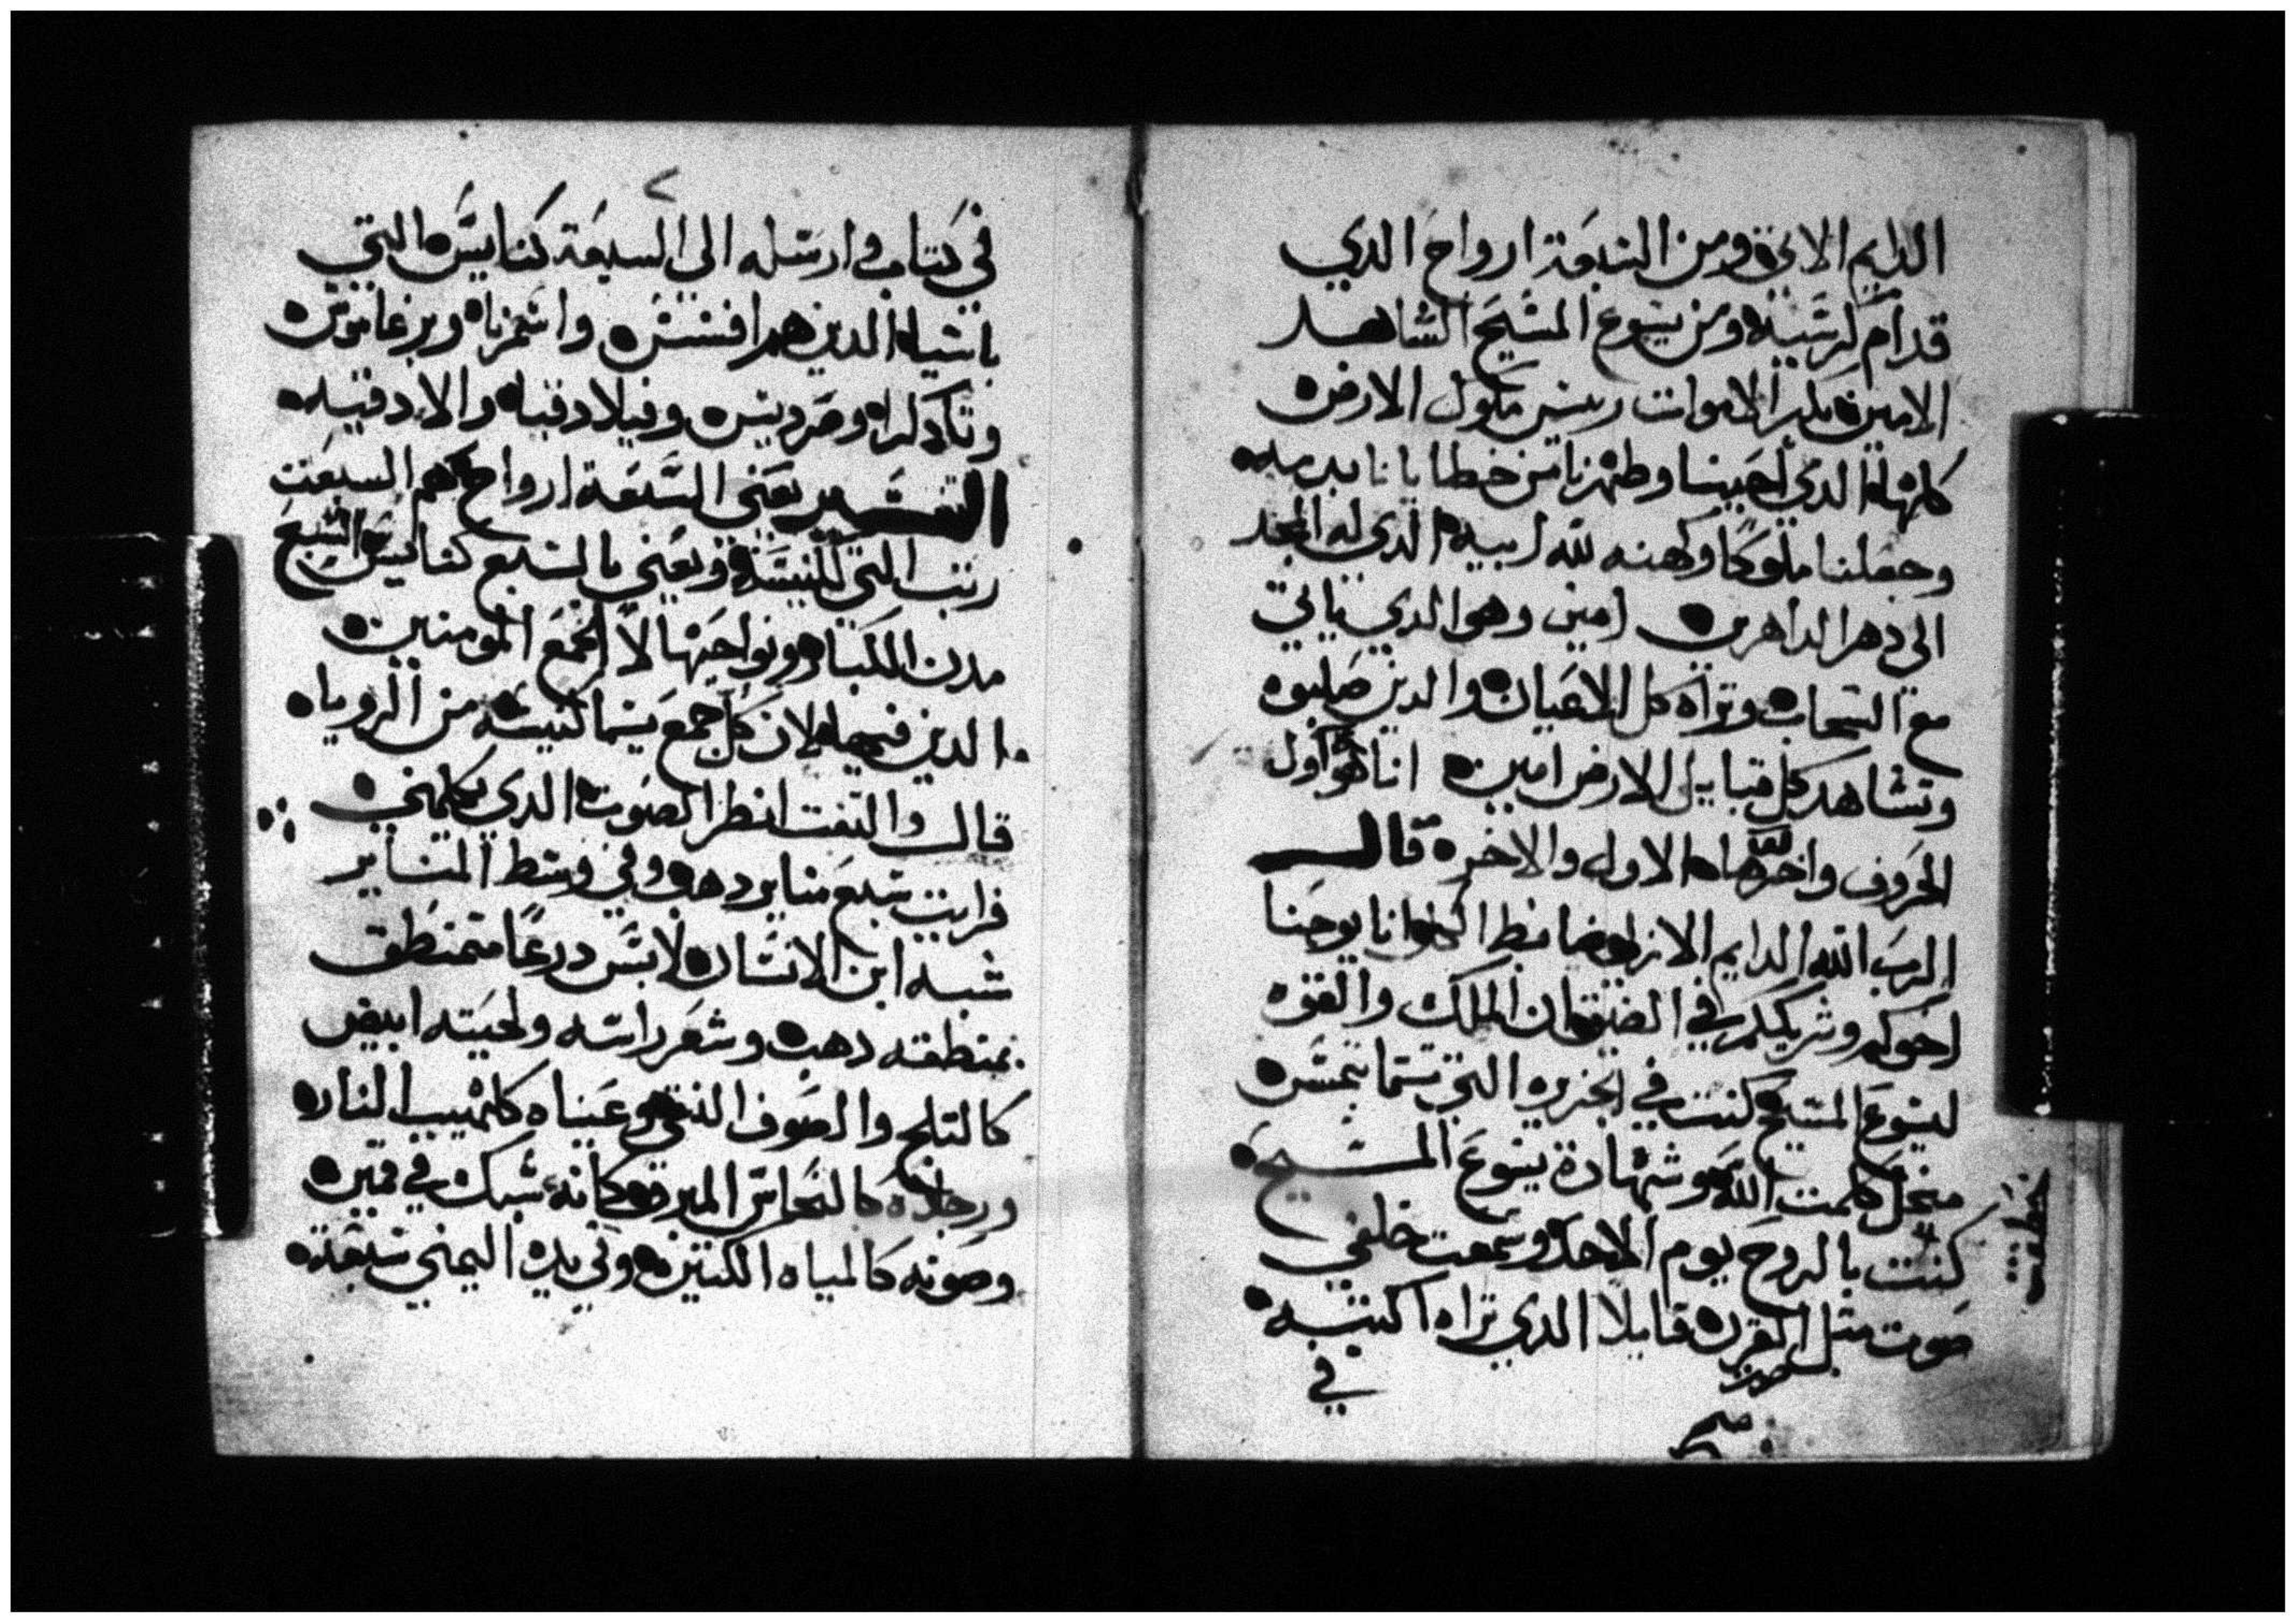 الدايم الاتي ومن السبعة ارواح الدي
قدام كرسيه ومن يسوع المسيح الشاهد
الامين بكر الاموات رييس ملوك الارض
كلها الدي احبنا وطهرنا من خطايانا بدمه
وجعلنا ملوكا وكهنه لله ابيه الدي له المجد
الى دهر الداهرين امين وهو الدي ياتي
مع السحاب وتراه كل الاعيان والدين صلبوه
وتشاهد كل قبايل الارض امين انا هو اول
الحروف واخرها الاول والاخر قال
الرب الله الدايم الازلي ضابط الكل انا يوحنا
اخوكم وشريككم في الضيقه ان الملك والقوه
ليسوع المسيح كنت في الجزيره التي تسما بتمس
من اجل كلمت الله وشهادة يسوع المسيح
كنت بالروح يوم الاحد وسمعت خلفي
صوت مثل القرن قايلا الدي تراه اكتبه
في
في كتاب وارسله الى السبعة كنايس التي
باسيا الدين هم افسس واسمرنا وبرغاموس
وتادكرا وصرديس وفيلادفيا والادقيه
التفسير يعني السبعة ارواح هم السبعت
رتب التي للكنيسة ويعني بالسبع كنايس السبع
مدن الكبار ونواحيها لاجل جمع المومنين
الدين فيها لان كل جمع يسما كنيسه من الرويا
قال والتفت انظر الصوت الدي يكلمني
فرايت سبع مناير دهب وفي وسط المناير
شبه ابن الانسان لابس درعا متمنطق
بمنطقه دهب وشعر راسه ولحيته ابيض
كالتلج والصوف النقي وعيناه كلهيب النار
ورجلاه كالنحاس المبرق كانه سبك في قمين
وصوته كالمياه الكتيره وفي يده اليمني سبعة